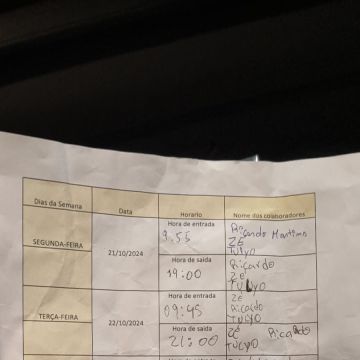 Dias da Semana Data Horario Nome dos colaboradores
SEGUNDA-FEIRA 21/10/2024
Hora de entrada
9:55
Ricardo Martins
ZÉ
TULYO
Hora de saida
19:00
Ricardo
Zé
TULYO
TERÇA-FEIRA 22/10/2024
Hora de entrada
09:45
ZÉ
Ricardo
TULYO
Hora de saida
21:00
ZÉ Ricardo
TULYO